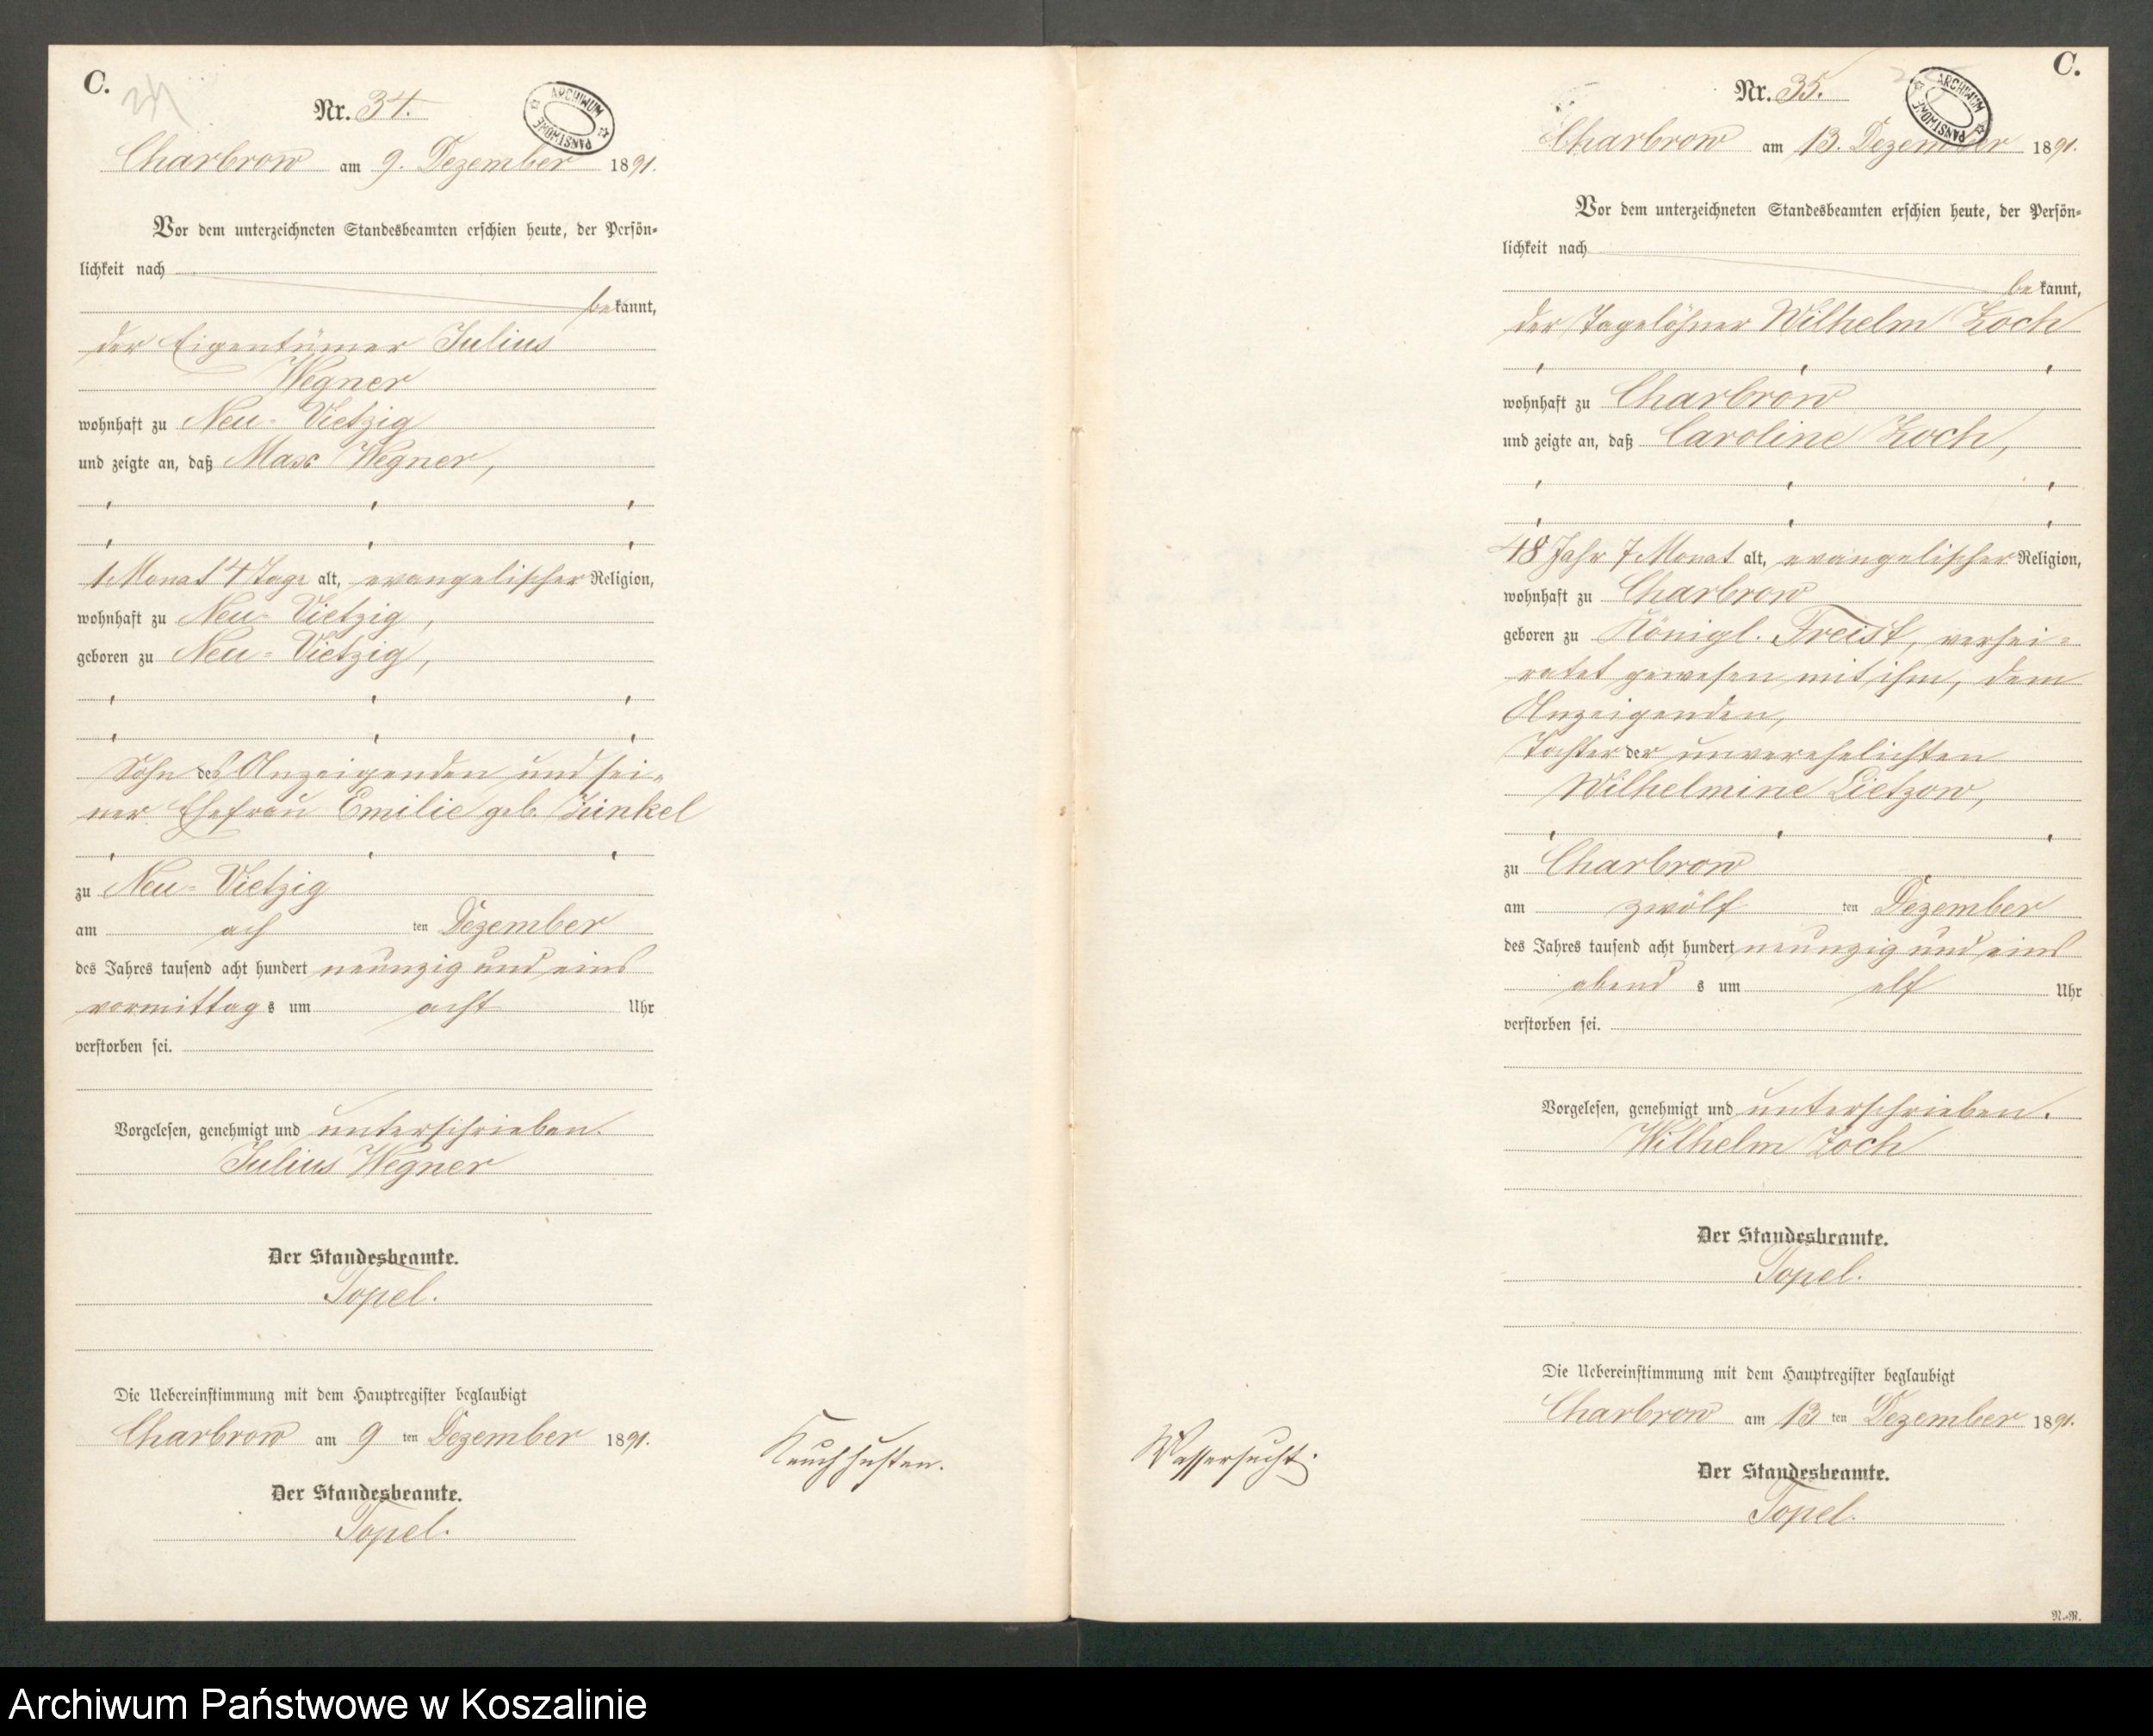 C.
34
Nr. 34.
ARCHIWUM PAŃSTWOWE
Charbrow am 9. Dezember 1891.
Vor dem unterzeichneten Standesbeamten erschien heute, der Persön-
lichkeit nach
bekannt,
der Eigentümer Julius
Wegner
wohnhaft zu Neu-Vietzig
und zeigte an, daß Max Wegner,
1 Monat 4 Tage alt, evangelischer Religion,
wohnhaft zu Neu-Vietzig,
geboren zu Neu-Vietzig,
Sohn des Anzeigenden und sei-
ner Ehefrau Emilie geb. Junkel
zu Neu-Vietzig
am ach ten Dezember
des Jahres tausend acht hundert neunzig und eins
vormittags um acht Uhr
verstorben sei.
Vorgelesen, genehmigt und unterschrieben.
Julius Wegner
Der Standesbeamte.
Topel.
Die Uebereinstimmung mit dem Hauptregister beglaubigt
Charbrow am 9 ten Dezember 1891.
Der Standesbeamte.
Topel.
Keuchhusten.
C.
Nr. 35.
ARCHIWUM PAŃSTWOWE
Charbrow am 13. Dezember 1891.
Vor dem unterzeichneten Standesbeamten erschien heute, der Persön-
lichkeit nach
bekannt,
der Tagelöhner Wilhelm Zoch
wohnhaft zu Charbrow
und zeigte an, daß Caroline Zoch,
48 Jahr 7 Monat alt, evangelischer Religion,
wohnhaft zu Charbrow
geboren zu Königl. Freist, verhei-
ratet gewesen mit ihm, dem
Anzeigenden,
Tochter der unverehelichten
Wilhelmine Lietzow,
zu Charbrow
am zwölf ten Dezember
des Jahres tausend acht hundert neunzig und eins
abend s um elf Uhr
verstorben sei.
Vorgelesen, genehmigt und unterschrieben.
Wilhelm Zoch
Der Standesbeamte.
Topel.
Die Uebereinstimmung mit dem Hauptregister beglaubigt
Charbrow am 13 ten Dezember 1891.
Der Standesbeamte.
Topel.
Wassersucht.
N.-R.
Archiwum Państwowe w Koszalinie